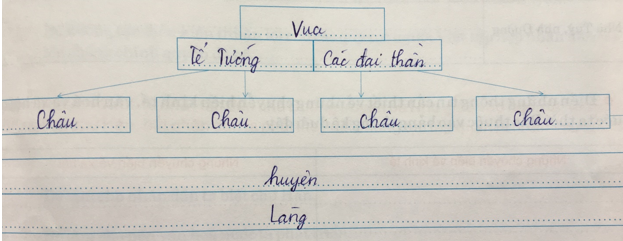 Vua
Tể Tướng Các đại thần
Châu Châu Châu Châu
huyện
Làng